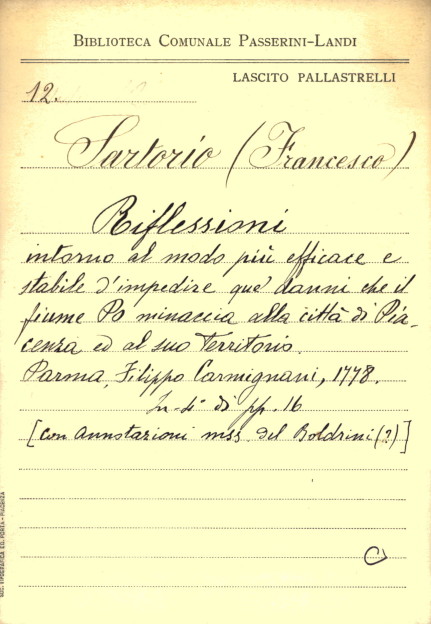 BIBLIOTECA COMUNALE PASSERINI-LANDI
LASCITO PALLASTRELLI
12.
Sartorio (Francesco)
Riflessioni
intorno al modo più efficace e
stabile d'impedire que' danni che il
fiume Po minaccia alla città di Pia-
cenza ed al suo Territorio.
Parma, Filippo Carmignani, 1778.
In-4° di pp. 16
[con annotazioni mss. del Boldrini(?)]
C